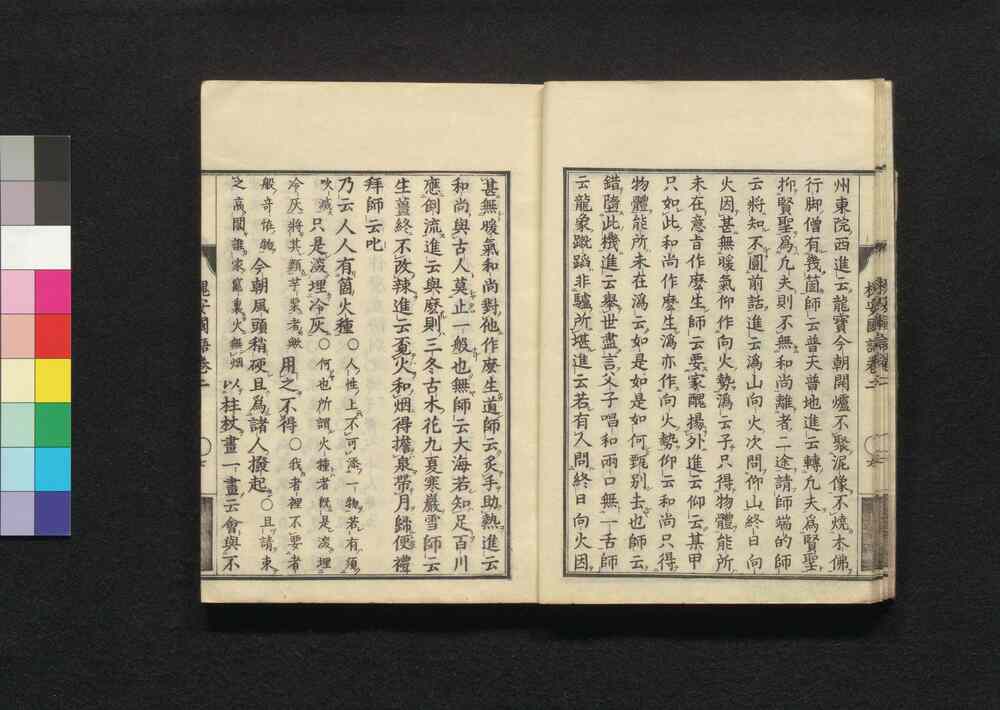 州東院西進云龍寶今朝開爐不聚泥像不燒木佛
行脚僧有幾箇師云普天普地進云轉凡夫爲賢聖
抑賢聖爲凡夫則不無和尚離者二途請師端的師
云將知不圓前話進云潙山向火次問仰山終日向
火因甚無暖氣仰作向火勢潙云子只得物體能所
未在意肯作麼生師云要家醜揚外進云仰云某甲
只如此和尚作麼生潙亦作向火勢仰云和尚只得
物體能所未在潙云如是如是如何甄別去也師云
錯墮此機進云舉世盡言父子唱和兩口無一舌師
云龍象蹴蹈非驢所堪進云若有人問終日向火因
甚無暖氣和尚對他作麼生道師云炙手助熱進云
和尚與古人莫止一般也無師云大海若知足百川
應倒流進云與麼則三冬古木花九夏寒巖雪師云
生薑終不改辣進云爰火和烟得擔泉帶月歸便禮
拜師云叱
乃云人人有箇火種○人性上不可添一物若有須
吹滅只是深埋冷灰○何也所謂火種者既是深埋
冷灰將其類苹菓者歟用之不得○我者裡不要者
般奇怪物今朝風頭稍硬且爲諸人撥起○且請東
之高閣誰家竈裏火無烟以柱杖畫一畫云會與不
槐安國語卷二